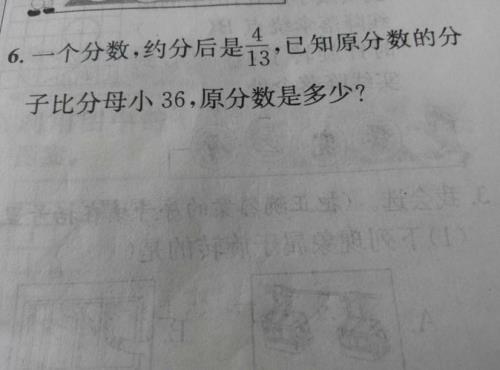 6. 一个分数,约分后是4/13,已知原分数的分
子比分母小 36,原分数是多少?